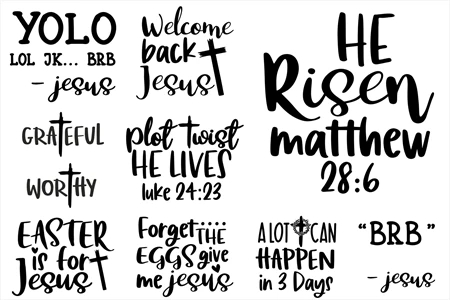 YOLO
LOL JK... BRB
- jesus
Welcome
back
Jesus
HE
Risen
matthew
28:6
GRATEFUL
WORTHY
plot twist
HE LIVES
luke 24:23
EASTER
is for
Jesus
Forget....
THE
EGGS give
me jesus
A LOT CAN
HAPPEN
in 3 Days
"BRB"
- jesus